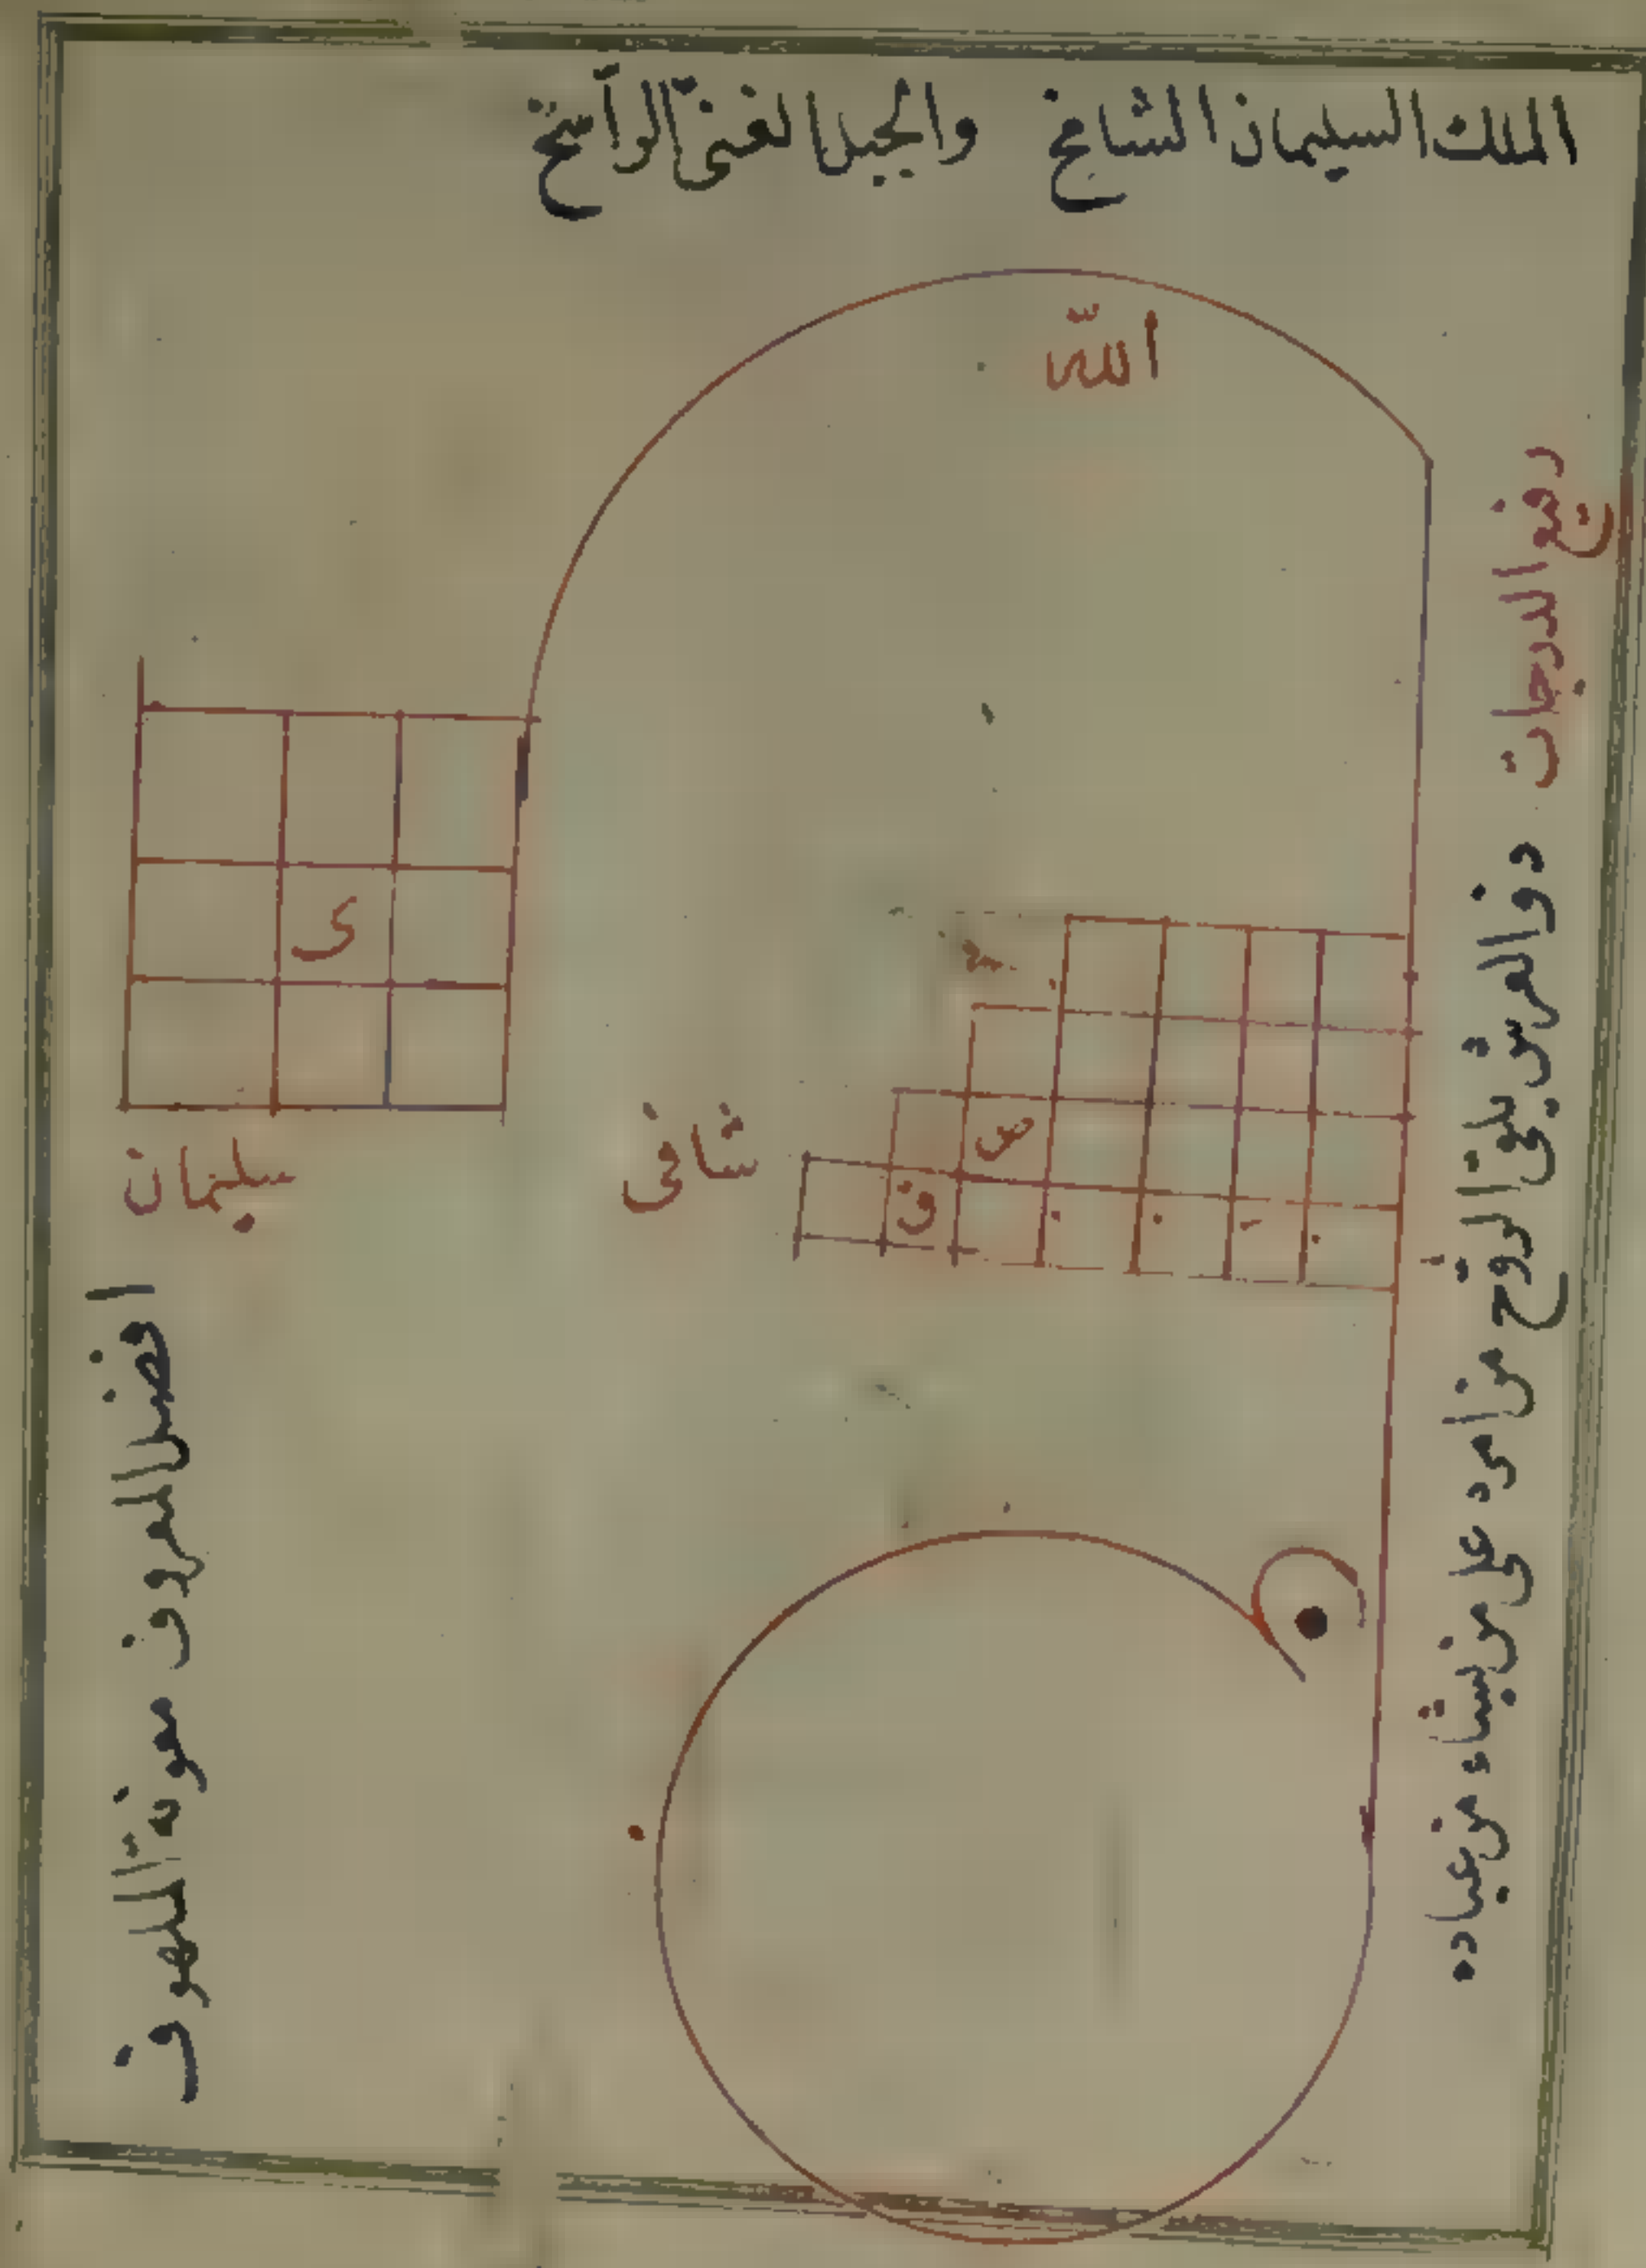 الملك السليمان الشامخ والجبل الغنى الراسخ
الله
رفيع الدرجات ذو العرش يلقى الروح من امره على من يشاء من عباده
ى
سليمان
شافى
س
ق
افضل المعروف معونة الملهوف